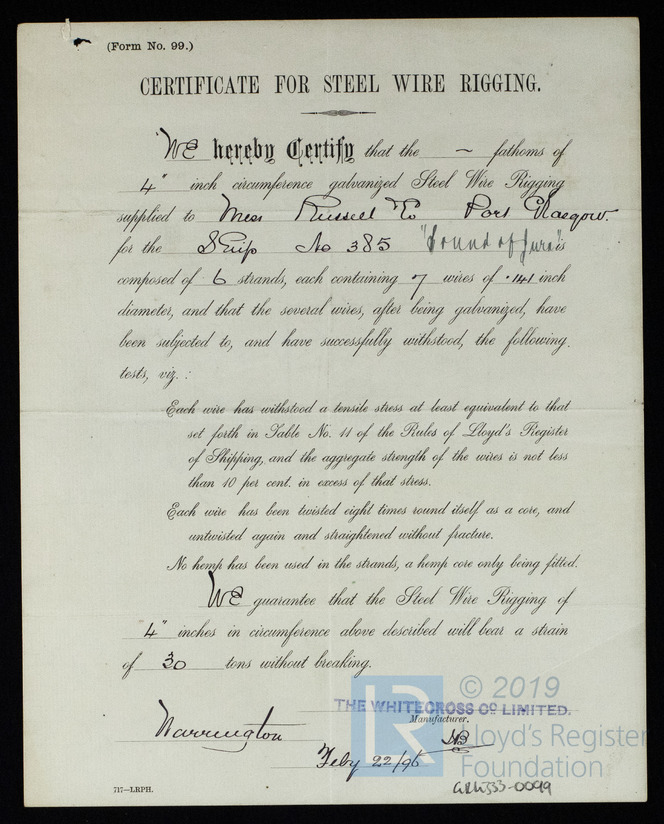 (Form No. 99.)
CERTIFICATE FOR STEEL WIRE RIGGING.
WE hereby Certify that the ~ fathoms of
4" inch circumference galvanized Steel Wire Rigging
supplied to Mess Russell & Co Port Glasgow.
for the Ship No 385 "Sound of Jura" is
composed of 6 strands, each containing 7 wires of .141 inch
diameter, and that the several wires, after being galvanized, have
been subjected to, and have successfully withstood, the following
tests, viz. :
Each wire has withstood a tensile stress at least equivalent to that
set forth in Table No. 11 of the Rules of Lloyd's Register
of Shipping, and the aggregate strength of the wires is not less
than 10 per cent. in excess of that stress.
Each wire has been twisted eight times round itself as a core, and
untwisted again and straightened without fracture.
No hemp has been used in the strands, a hemp core only being fitted.
WE guarantee that the Steel Wire Rigging of
"4" inches in circumference above described will bear a strain
of 30 tons without breaking.
THE WHITECROSS CO LIMITED.
Manufacturer.
Warrington
Feby 22/96
717—LRPH.
LR © 2019
Lloyd's Register
Foundation
GRK333-0099